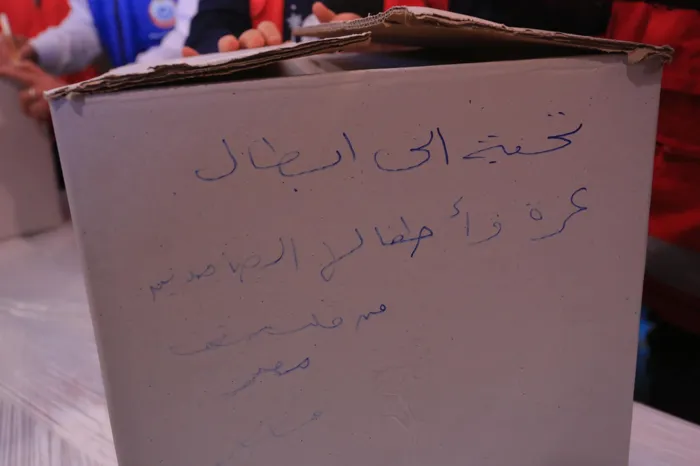 تحية الى ابطال
غزة وأطفالها الصامدين
من
مصر